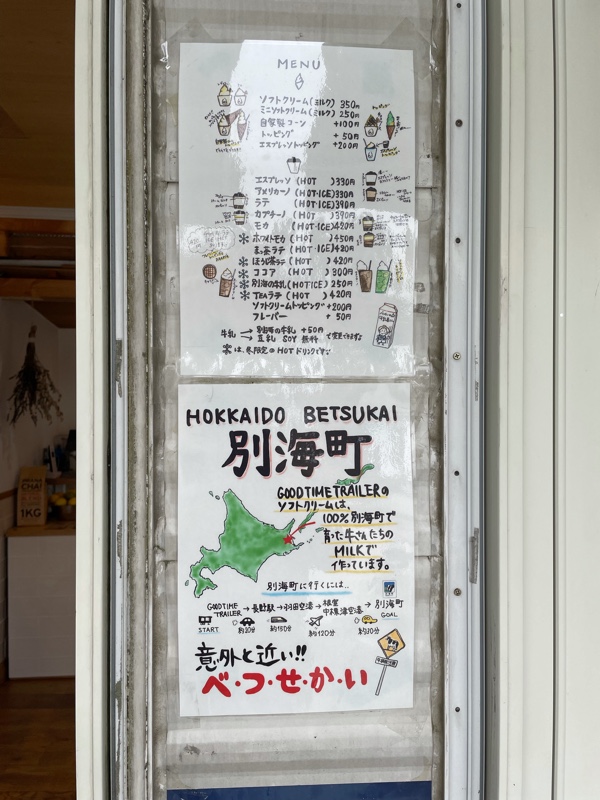 MENU
ソフトクリーム(ミルク) 350円
ミニソフトクリーム(ミルク) 250円
自家製コーン +100円
トッピング +50円
エスプレッソトッピング +200円
エスプレッソ (HOT ) 330円
アメリカーノ (HOT・ICE) 330円
ラテ (HOT・ICE) 390円
カプチーノ (HOT ) 390円
モカ (HOT・ICE) 420円
＊ ホワイトモカ (HOT ) 450円
まっ茶ラテ (HOT・ICE) 420円
＊ ほうじ茶ラテ (HOT ) 420円
＊ ココア (HOT ) 300円
＊ 別海の牛乳 (HOT ICE) 250円
＊ TEAラテ (HOT ) 420円
ソフトクリームトッピング +200円
フレーバー +50円
牛乳 → 別海町の牛乳 +50円
→ 豆乳 SOY 無料 で変更できます♪
＊は、冬限定のHOTドリンクです♪
HOKKAIDO BETSUKAI
別海町
GOODTIME TRAILERの
ソフトクリームは、
100%別海町で
育った牛さんたちの
MILKで
作っています。
別海町に行くには...
GOODTIME TRAILER → 長野駅 → 羽田空港 → 根室中標津空港 → 別海町
START 約20分 約150分 約120分 約30分 GOAL
意外と近い!!
べ・つ・せ・か・い
CHAI
1KG